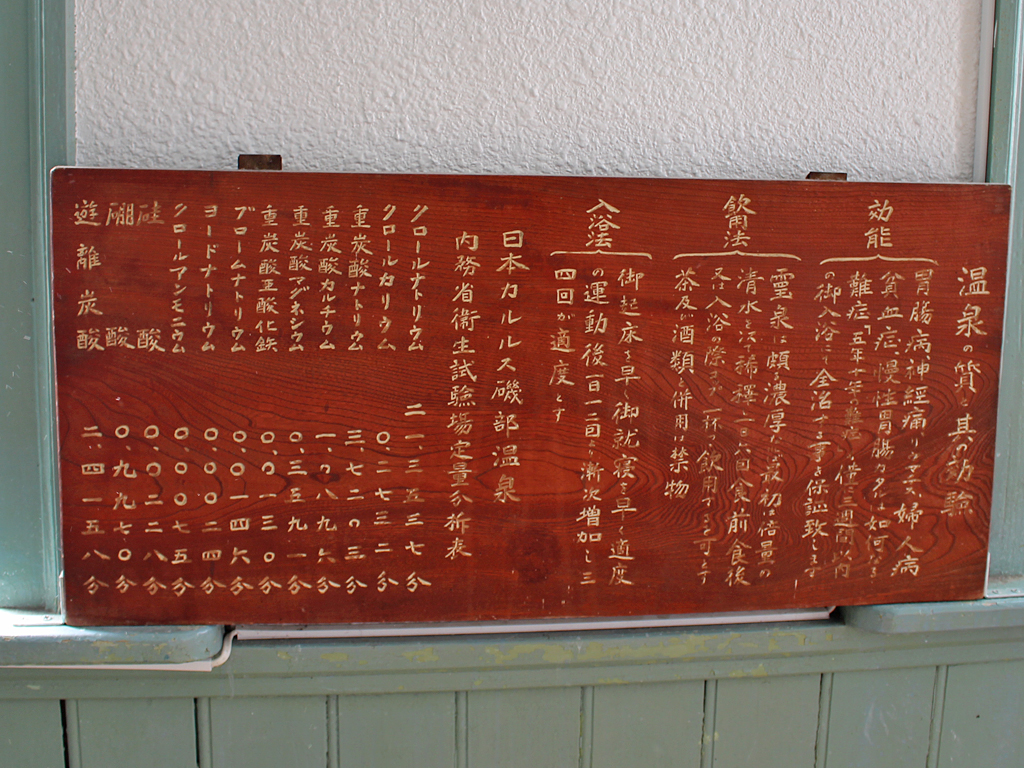 温泉の質と其の効験
効能
胃腸病神経痛リウマチス婦人病
貧血症慢性胃腸カタル如何なる
難症「五年十年の
の御入浴にて全治する事を保証致します
飲用法
霊泉は頗る濃厚なれば最初は倍量の
清水を以て稀釋一日六回食前食後
又は入浴の際一杯づつ飲用する可とす
茶及び酒類と併用は禁物
入浴法
御起床を早く御就寝を早く適度
の運動後一日一二回より漸次増加し三
四回が適度とす
日本カルルス磯部温泉
内務省衛生試験場定量分析表
クロールナトリウム 二一、三五三七分
クロールカリウム 〇、二七三二分
重炭酸ナトリウム 三、七二〇三分
重炭酸カルチウム 一、〇八九六分
重炭酸マグネシウム 〇、三五九一分
重炭酸亜酸化鉄 〇、〇一三〇分
ブロームナトリウム 〇、〇一四六分
ヨードナトリウム 〇、〇〇二四分
クロールアンモニウム 〇、〇〇七五分
硅酸 〇、〇二二八分
硼酸 〇、九九七〇分
遊離炭酸 二、四一五八分